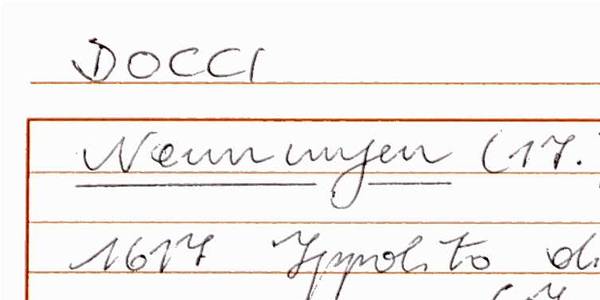 DOCCI
Nennungen (17.
1617 Ippolito d